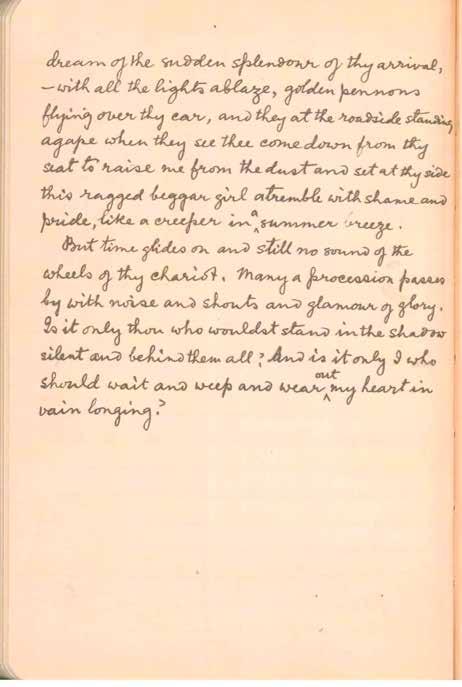 dream of the sudden splendour of thy arrival,
– with all the lights ablaze, golden pennons
flying over thy car, and they at the roadside standing
agape when they see thee come down from thy
seat to raise me from the dust and set at thy side
this ragged beggar girl atremble with shame and
pride, like a creeper in a summer breeze.
But time glides on and still no sound of the
wheels of thy chariot. Many a procession passes
by with noise and shouts and glamour of glory.
Is it only thou who wouldst stand in the shadow
silent and behind them all? And is it only I who
should wait and weep and wear out my heart in
vain longing?